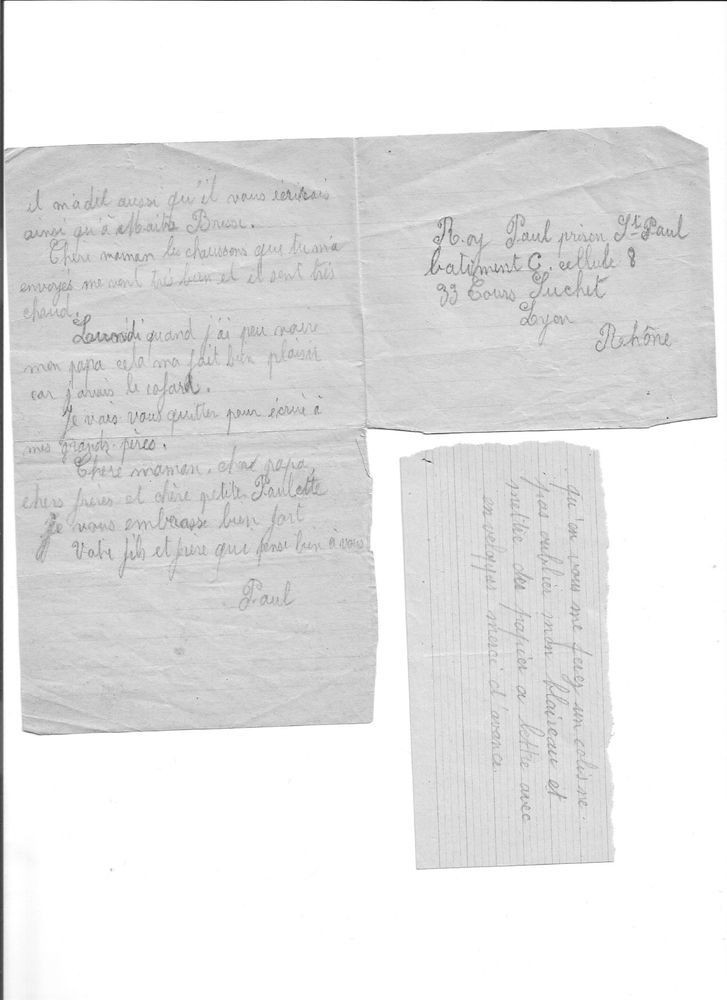 il m'a dit aussi qu'il vous écrirais
ainsi qu'à Maitre Bresse.
Chère maman les chaussons que tu m'a
envoyés me vont très bien et il sont très
chaud.
Lundi quand j'ai peu voire
mon papa cela ma fait bien plaisir
car j'avais le cafard.
Je vais vous quitter pour écrire à
mes grands-pères.
Chère maman, cher papa,
chers frères et chère petite Paulette
je vous embrasse bien fort
Votre fils et frère qui pense bien à vous
Paul
Roy Paul prison St Paul
batiment C. cellule 8
33 Cours Suchet
Lyon
Rhône
qu'on vous me ferez un colis ne
pas oublier mon blaireau et
mettre du papier a lettre avec
enveloppes merci d'avance.